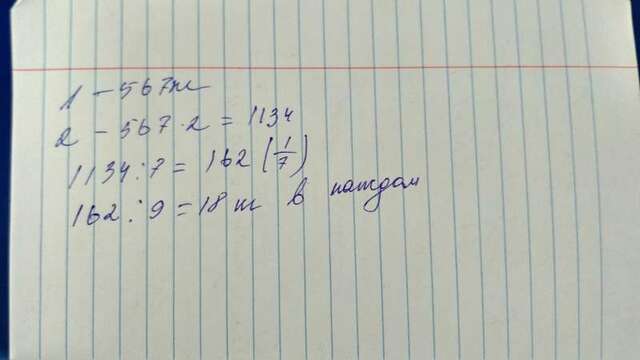 1 - 567 т
2 - 567 · 2 = 1134
1134 : 7 = 162 (1/7)
162 : 9 = 18 т в каждом